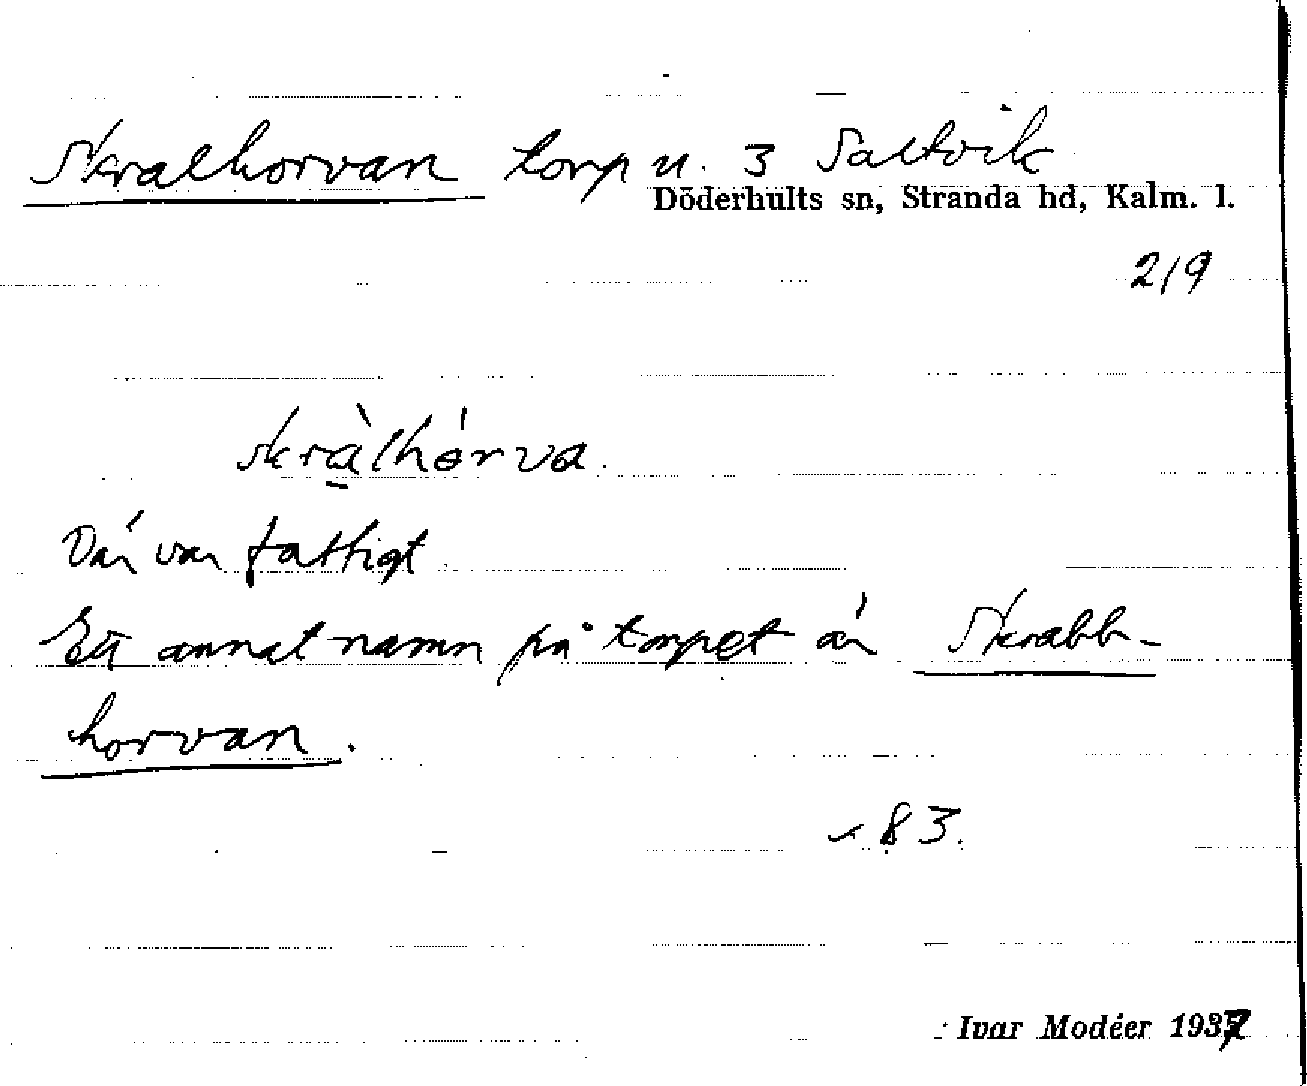 Skralhorvan torp u. 3 Saltvik
Döderhults sn, Stranda hd, Kalm. l.
219
skràlhórva.
Där var fattigt
Ett annat namn på torpet är Skrabb-
horvan.
83.
Ivar Modéer 1937